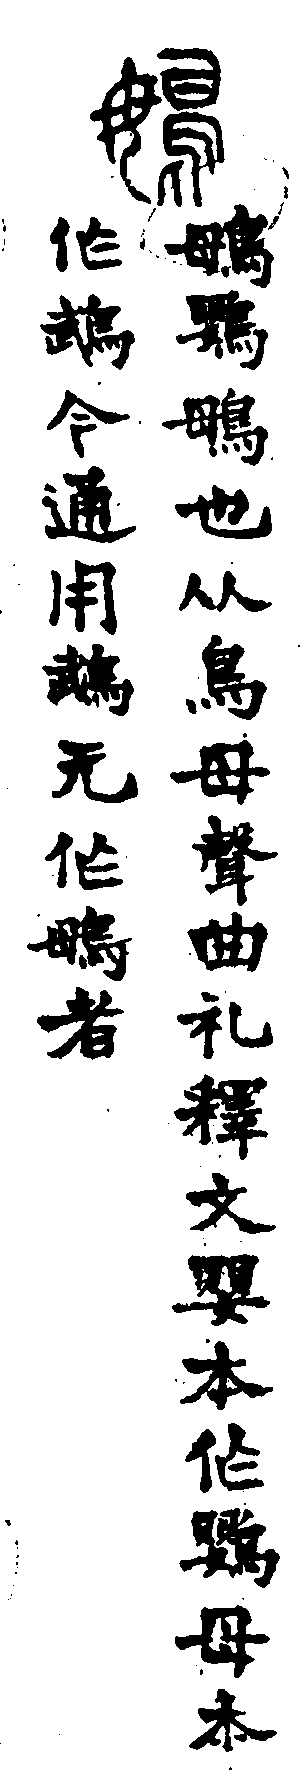 䳇
䳇鸚䳇也从鳥母聲曲礼釋文嬰本作鸚母本
作鵡今通用鵡无作䳇者